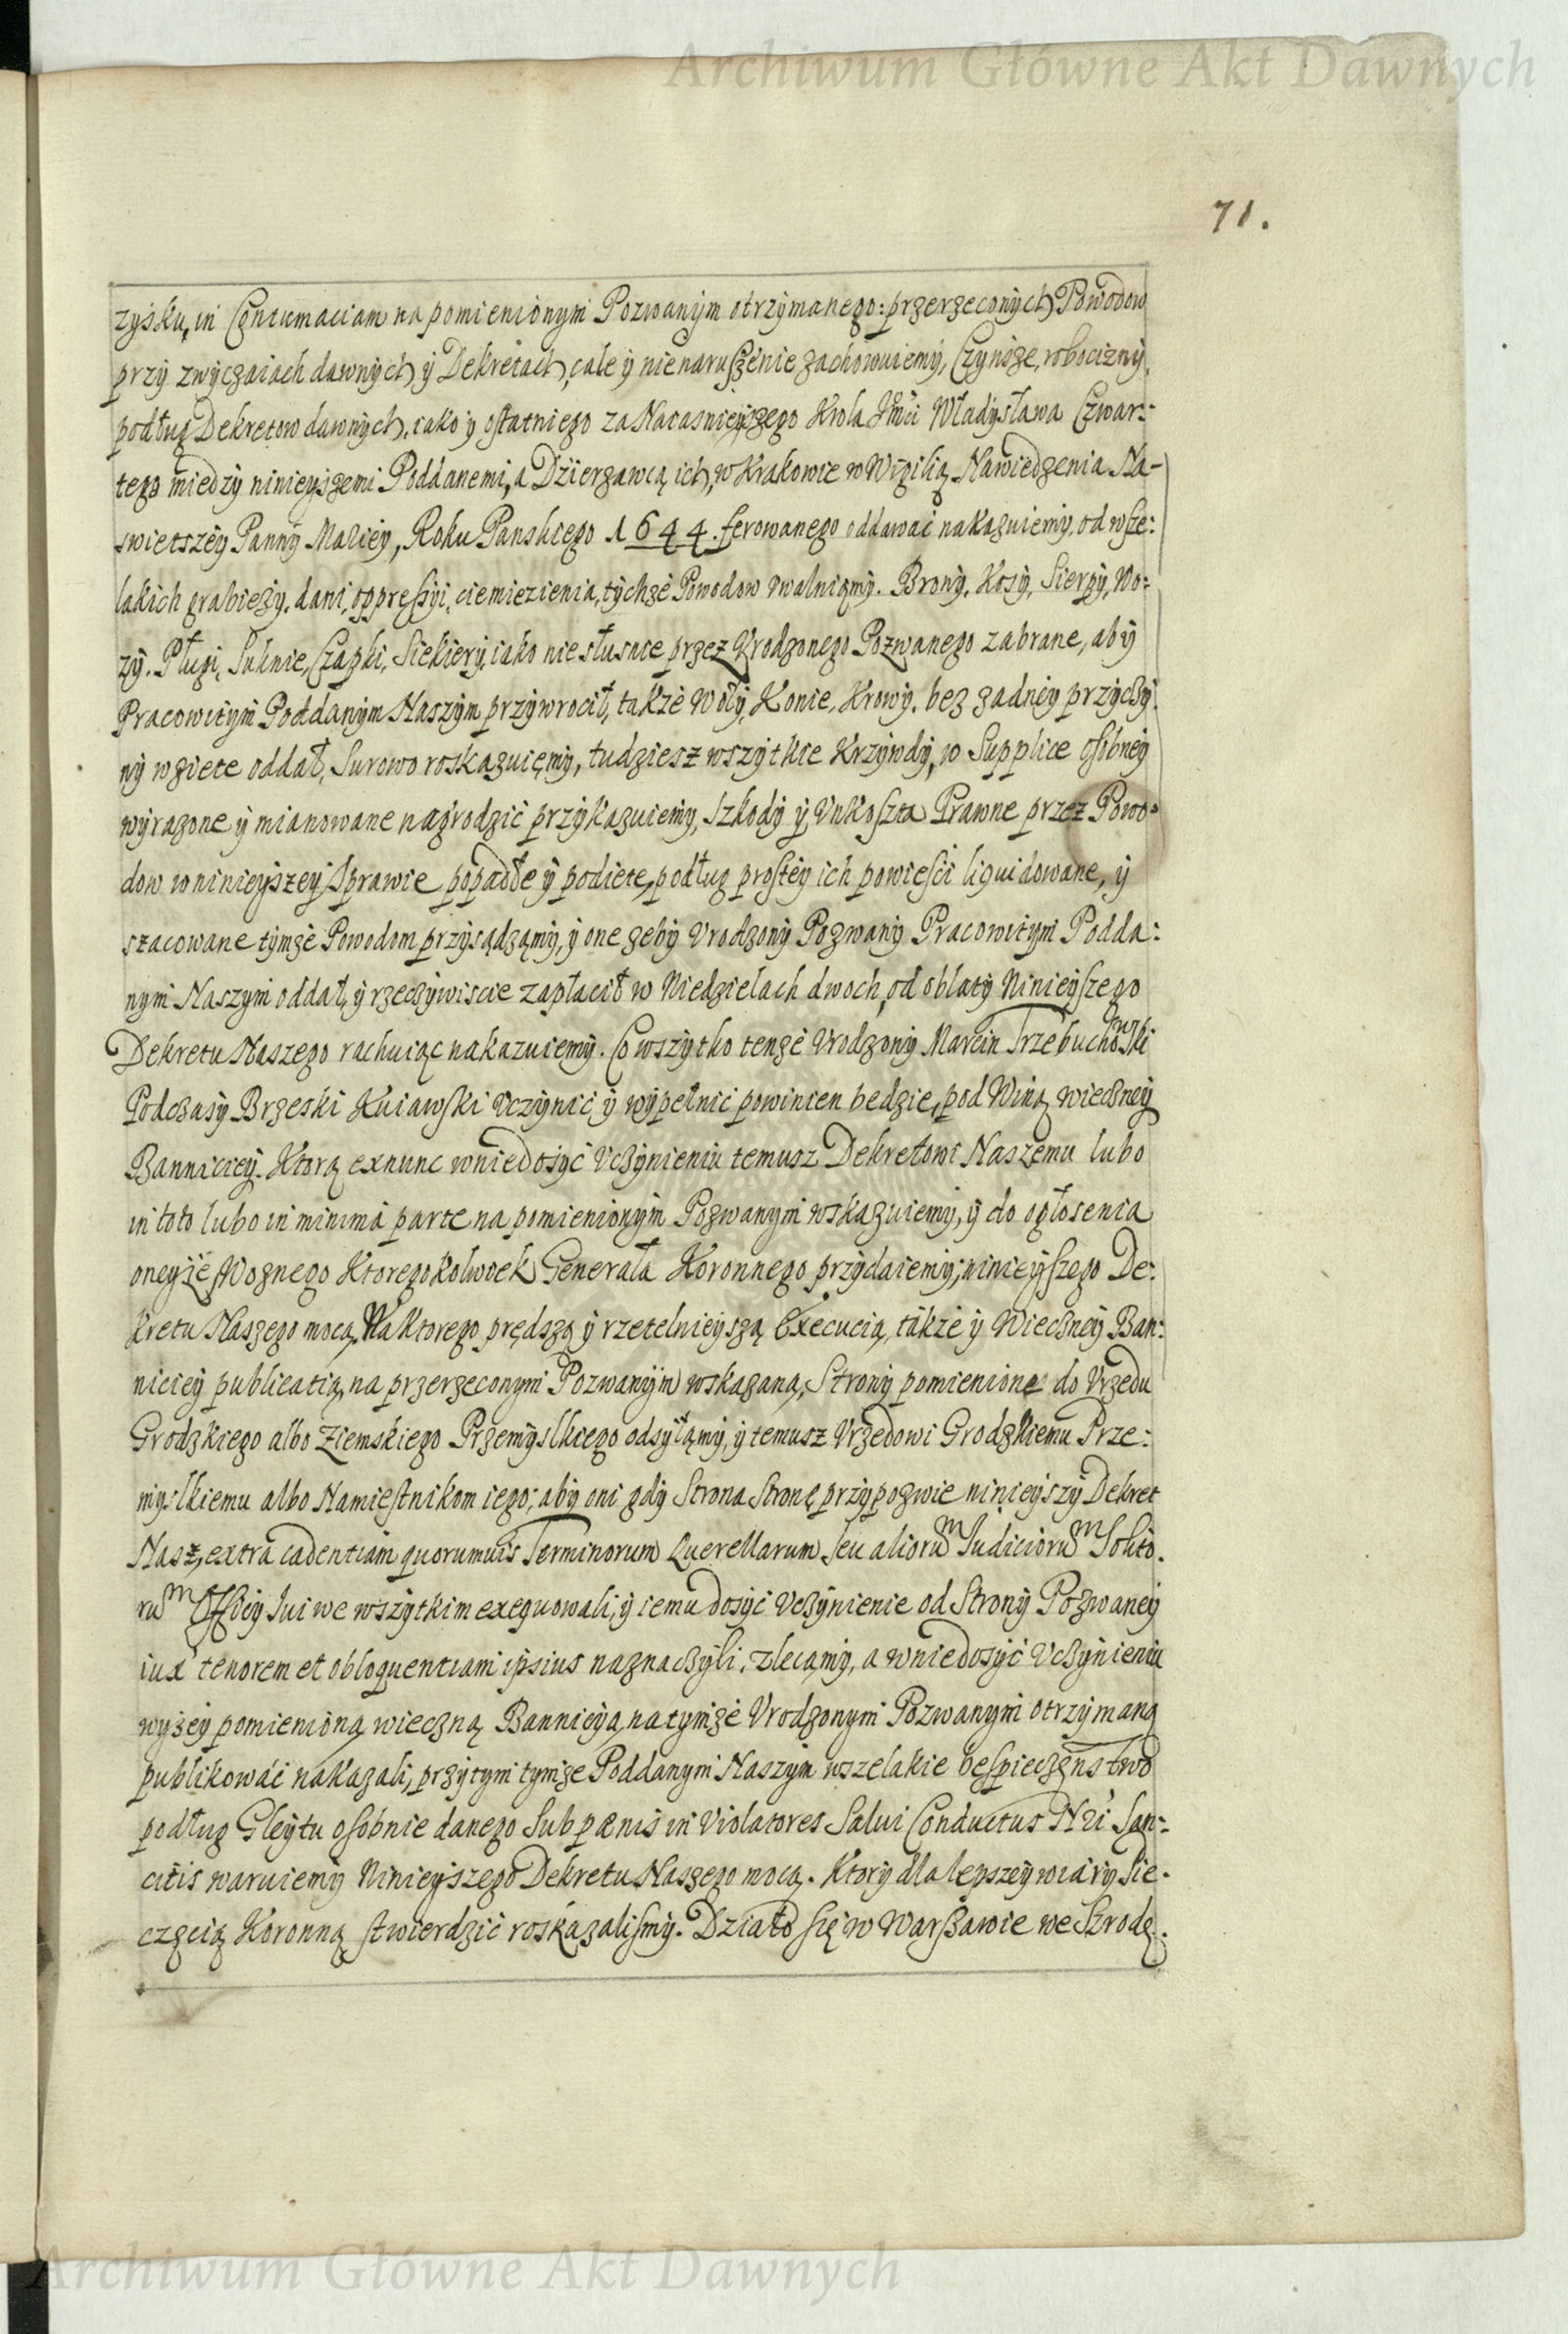 Archiwum Główne Akt Dawnych
71.
zysku, in Contumaciam na pomienionym Pozwanym otrzymanego: przerzeconych Powodow
przy zwyczaiach dawnych y Dekretach, cale y nienaruszenie zachowuiemy, Czynsze, robocizny,
podług Dekretow dawnych, iako y ostatniego za Naiasnieyszego Krola Jmci Władysława Czwar:
tego miedzy ninieyszemi Poddanemi, a Dzierzawcą ich, w Krakowie w Wigilią Nawiedzenia Na-
swietszey Panny Mariey, Roku Panskiego 1644. ferowanego oddawać nakazuiemy, od wsze:
lakich grabieży, dani, oppressyi, ciemiezienia, tychże Powodow uwalniamy. Brony, Kosy, Sierpy, Wo:
zy. Pługi, Suknie, Czapki, Siekiery, iako niesłusnie przez Urodzonego Pozwanego zabrane, aby
Pracowitym Poddanym Naszym przywrocił, także Woły, Konie, Krowy, bez zadney przyczy:
ny wziete oddał, Surowo roskazuiemy, tudziesz wszytkie Krzywdy, w Supplice osobney
wyrazone y mianowane nagrodzić przykazuiemy, Szkody y Unkoszta Prawne przez Powo:
dow w ninieyszey Sprawie popadłe y podiete, podług prostey ich powieści liquidowane, y
szacowane tymże Powodom przysądzamy, y one żeby Urodzony Pozwany Pracowitym Podda:
nym Naszym oddał, y rzeczywiscie zapłacił w Niedzielach dwoch, od oblaty Ninieyszego
Dekretu Naszego rachuiąc nakazuiemy. Co wszytko tenże Urodzony Marcin Trzebuchowski
Podczaszy Brzeski Kuiawski uczynić y wypełnić powinien bedzie, pod Winą wieczney
Banniciey. Ktorą exnunc w niedosyć uczynieniu temusz Dekretowi Naszemu lubo
in toto lubo in minima parte na pomienionym Pozwanym wskazuiemy, y do ogłosenia
oneyże Woznego Ktoregokolwiek Generała Koronnego przydaiemy; ninieyszego De:
kretu Naszego mocą, Na ktorego prędszą y rzetelnieyszą Execucią, także y Wieczney Ban:
niciey publicatią, na przerzeconym Pozwanym wskazaną, Strony pomienione do Urzedu
Grodzkiego albo Ziemskiego Przemyslkiego odsyłamy, y temusz Urzedowi Grodzkiemu Prze:
myslkiemu albo Namiestnikom iego; aby oni gdy Strona Stronę przypozwie ninieyszy Dekret
Nasz, extra cadentiam quorumuis Terminorum Querellarum Seu alioru͏̃m Judicioru͏̃m Solito.
rum Officij Sui we wszytkim exequowali, y iemu dosyć uczynienie od Strony Pozwaney
iux tenorem et obloquentiam ipsius naznaczyli, zlecamy, a w niedosyć uczynieniu
wyżey pomienioną wieczną Bannicyą, na tymże Urodzonym Pozwanym otrzymaną
publikować nakazali, przytym tymże Poddanym Naszym wszelakie bespieczenstwo
podług Gleytu osobnie danego Sub pœnis in Violatores Salui Conductus Nri San:
citis waruiemy Ninieyszego Dekretu Naszego mocą. Ktory dla lepszey wiary Pie-
częcią Koronną stwierdzić roskazalismy. Działo się w Warszawie we Szrodę.
Archiwum Główne Akt Dawnych